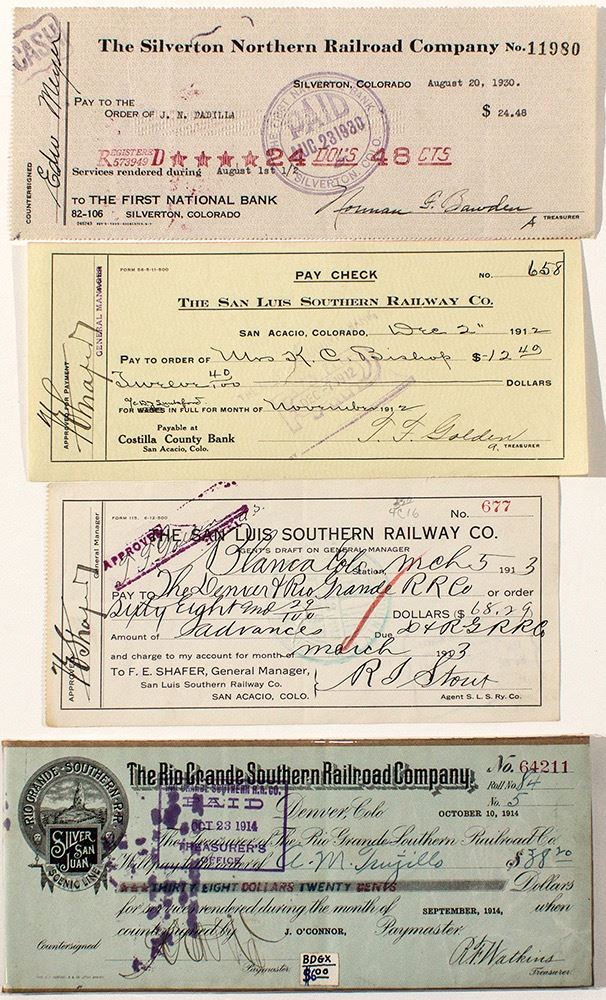 CASH
The Silverton Northern Railroad Company No. 11980
SILVERTON, COLORADO August 20, 1930.
PAY TO THE
ORDER OF J. N. PADILLA $ 24.48
PAID
AUG 23 1930
SILVERTON, COLO.
REGISTERED
573949 ★★★★ 24 DOL'S 48 CTS
Services rendered during August 1st 1/2
TO THE FIRST NATIONAL BANK
82-106 SILVERTON, COLORADO
TREASURER
COUNTERSIGNED
Edw Meyer
FORM 56-5-11-500
PAY CHECK NO. 658
THE SAN LUIS SOUTHERN RAILWAY CO.
SAN ACACIO, COLORADO, Dec 2" 1912
PAY TO ORDER OF Mrs K. C. Bishop $-12 40
Twelve 40/100 DOLLARS
FOR WAGES IN FULL FOR MONTH OF November 1912
Payable at
Costilla County Bank
San Acacio, Colo.
T. F. Golden
TREASURER
APPROVED FOR PAYMENT
GENERAL MANAGER
FORM 115. 6-12-500
No. 677
THE SAN LUIS SOUTHERN RAILWAY CO.
AGENT'S DRAFT ON GENERAL MANAGER
APPROVED
Blanca Colo Station, Mch 5 1913
PAY TO The Denver & Rio Grande R R Co or order
Sixty Eight and 29/100 DOLLARS ($ 68.29
Amount of advances Due D & R G R R Co
and charge to my account for month of march 1913
To F. E. SHAFER, General Manager,
San Luis Southern Railway Co.
SAN ACACIO, COLO.
R I Stout
Agent S. L. S. Ry. Co.
APPROVED
General Manager
RIO GRANDE SOUTHERN R.R.
SILVER
SAN
JUAN
SCENIC LINE
The Rio Grande Southern Railroad Company, No. 64211
Roll No. 84
No. 5
RIO GRANDE SOUTHERN R.R. CO.
PAID
OCT 23 1914
TREASURER'S
OFFICE
Denver, Colo OCTOBER 10, 1914
The Rio Grande Southern Railroad Co.
Will pay to the order of A. M. Trujillo $38 20
★★★THIRTY EIGHT DOLLARS TWENTY CENTS Dollars
for services rendered during the month of SEPTEMBER, 1914, when
countersigned by J. O'CONNOR, Paymaster
Countersigned
Paymaster
BDGX
R. F. Watkins
Treasurer.